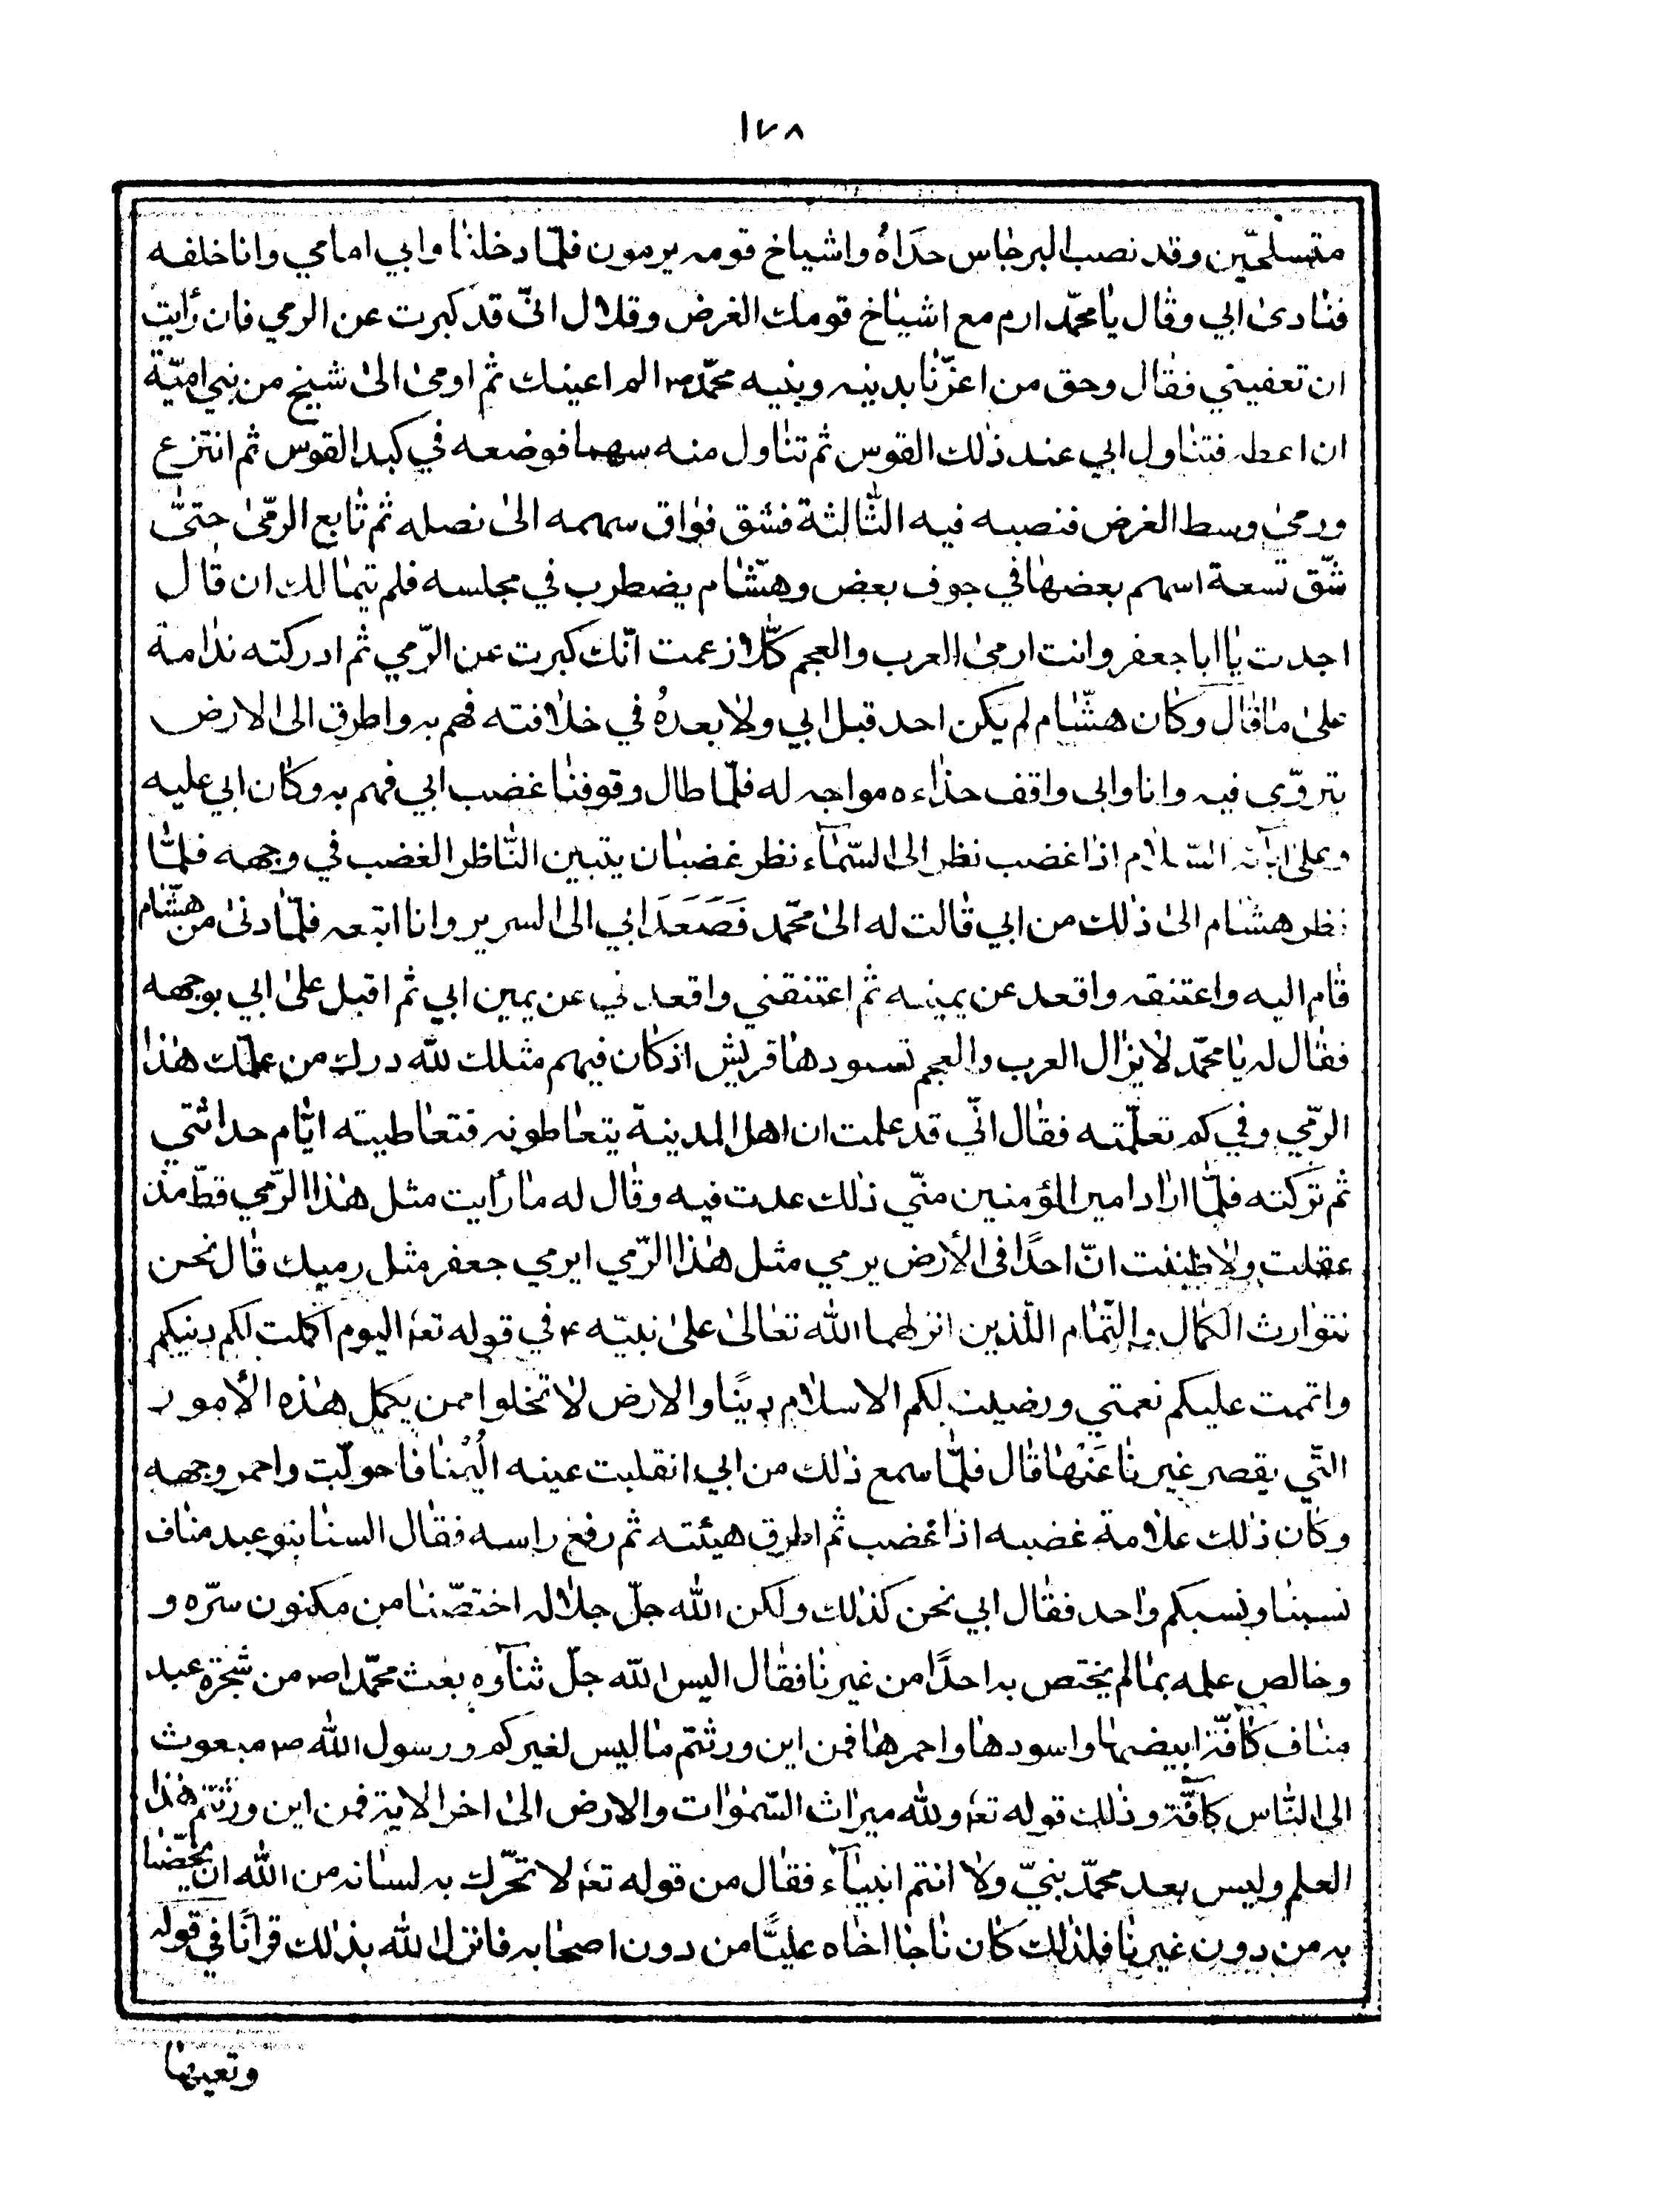 ١٧٨
متسلحين وقد نصب البرجاس حذاه واشياخ قومه يرمون فلمّا دخلنا وابي امامي وانا خلفه
فنادى ابي وقال يا محمّد ارم مع اشياخ قومك الغرض وقلال انّى قد كبرت عن الرمي فان رأيت
ان تعفيني فقال وحق من اعزّنا بدينه ونبيه محمّد ص الم اعينك ثم اومى الى شيخ من بني اميّة
ان اعطه فتناول ابي عند ذلك القوس ثم تناول منه سهما فوضعه في كبد القوس ثم انتزع
ورمى وسط الغرض فنصبه فيه الثّالثة فشق فواق سهمه الى نصله ثم تابع الرمّى حتىّ
شّق تسعة اسهم بعضها في جوف بعض وهشّام يضطرب في مجلسه فلم يتمالك ان قال
اجدت يا ابا جعفر وانت ارمى العرب والعجم كلّا زعمت انّك كبرت عن الرّمي ثم ادركته ندامة
على ما قال وكان هشّام لم يكن احد قبل ابي ولا بعدهُ في خلافته فهم به واطرق الى الارض
يتروّى فيه وانا وابى واقف حذاءه مواجه له فلمّا طال وقوفنا غضب ابي فهم به وكان ابي عليه
وعلى ابآئه السّلام اذا غضب نظر الى السّمآء نظر غضبان يتبين النّاظر الغضب في وجهه فلمّا
نظر هشام الى ذلك من ابي قالت له الى محمّد فَصَعَدَ ابي الى السرير وانا اتبعه فلمّا دنى من هشّام
قام اليه واعتنقه واقعد عن يمينه ثم اعتنقني واقعدني عن يمين ابي ثم اقبل على ابي بوجهه
فقال له يا محمّد لا يزال العرب والعجم تسودها قريش اذ كان فيهم مثلك للّه درك من علّمك هذا
الرّمي وفي كم تعلّمته فقال انّي قد علمت ان اهل المدينة يتعاطونه فتعاطيته ايّام حداثتي
ثم تركته فلمّا اراد امير المؤمنين منّي ذلك عدت فيه وقال له ما رأيت مثل هذا الرّمي قطّ مذ
عقلت ولا ظننت انّ احدًا فى الأرض يرمي مثل هذا الرّمي ايرمي جعفر مثل رميك قال نحن
نتوارث الكمال والتّمام اللّذين انزلهما اللّه تعالى على نبيّه ع في قوله تعه اليوم اكملت لكم دنيكم
واتممت عليكم نعمتي ورضيت لكم الاسلام دينًا والارض لا تخلوا ممن يكمل هذه الأمور
التّي يقصر غيرنا عَنْها قال فلمّا سمع ذلك من ابي انقلبت عينه اليُمنا فاحولّت واحمر وجهه
وكان ذلك علامة غضبه اذا غضب ثم اطرق هيئته ثم رفع راسه فقال السنا بنو عبد مناف
نسبنا ونسبكم واحد فقال ابي نحن كذلك ولكن اللّه جلّ جلاله اختصّنا من مكنون سرّه و
وخالص علمه بما لم يختص به احدًا من غيرنا فقال اليس اللّه جلّ ثنآوه بعث محمّدا ص من شجرة عبد
مناف كافّة ابيضها واسودها واحمرها فمن اين ورثتم ما ليس لغيركم ورسول اللّه ص مبعوث
الى النّاس كافّة وذلك قوله تعه وللّه ميراث السّموات والارض الى اخر الاية فمن اين ورثتم هذا
العلم وليس بعد محمّد بنيّ ولا انتم انبيآء فقال من قوله تعه لا تحّرك به لسانه من اللّه ان يخصّنا
به من دون غيرنا فلذلك كان ناجا اخاه عليًّا من دون اصحابه فانزل اللّه بذلك قرانًا في قوله
وتعيها